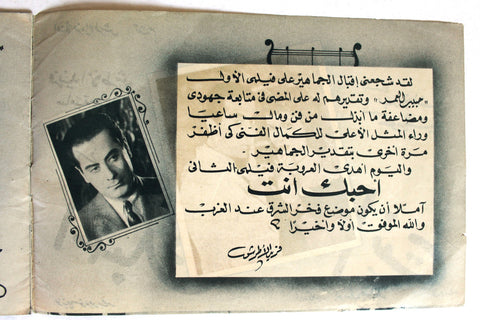 لقد شجعني إقبال الجماهير على فيلمي الأول
"حبيب العمر" وتقديرهم له على المضي في متابعة جهودي
ومضاعفة ما ابذل من فن ومال ساعيا
وراء المثل الأعلى للكمال الفني كى أظفر
مرة أخرى بتقدير الجماهير -
واليوم اهدى العروبة فيلمي الثانى
احبك انت
آملا أن يكون موضع فخر الشرق عند الغرب
والله الموفق أولا وأخيرا ؟
فريد الأطرش